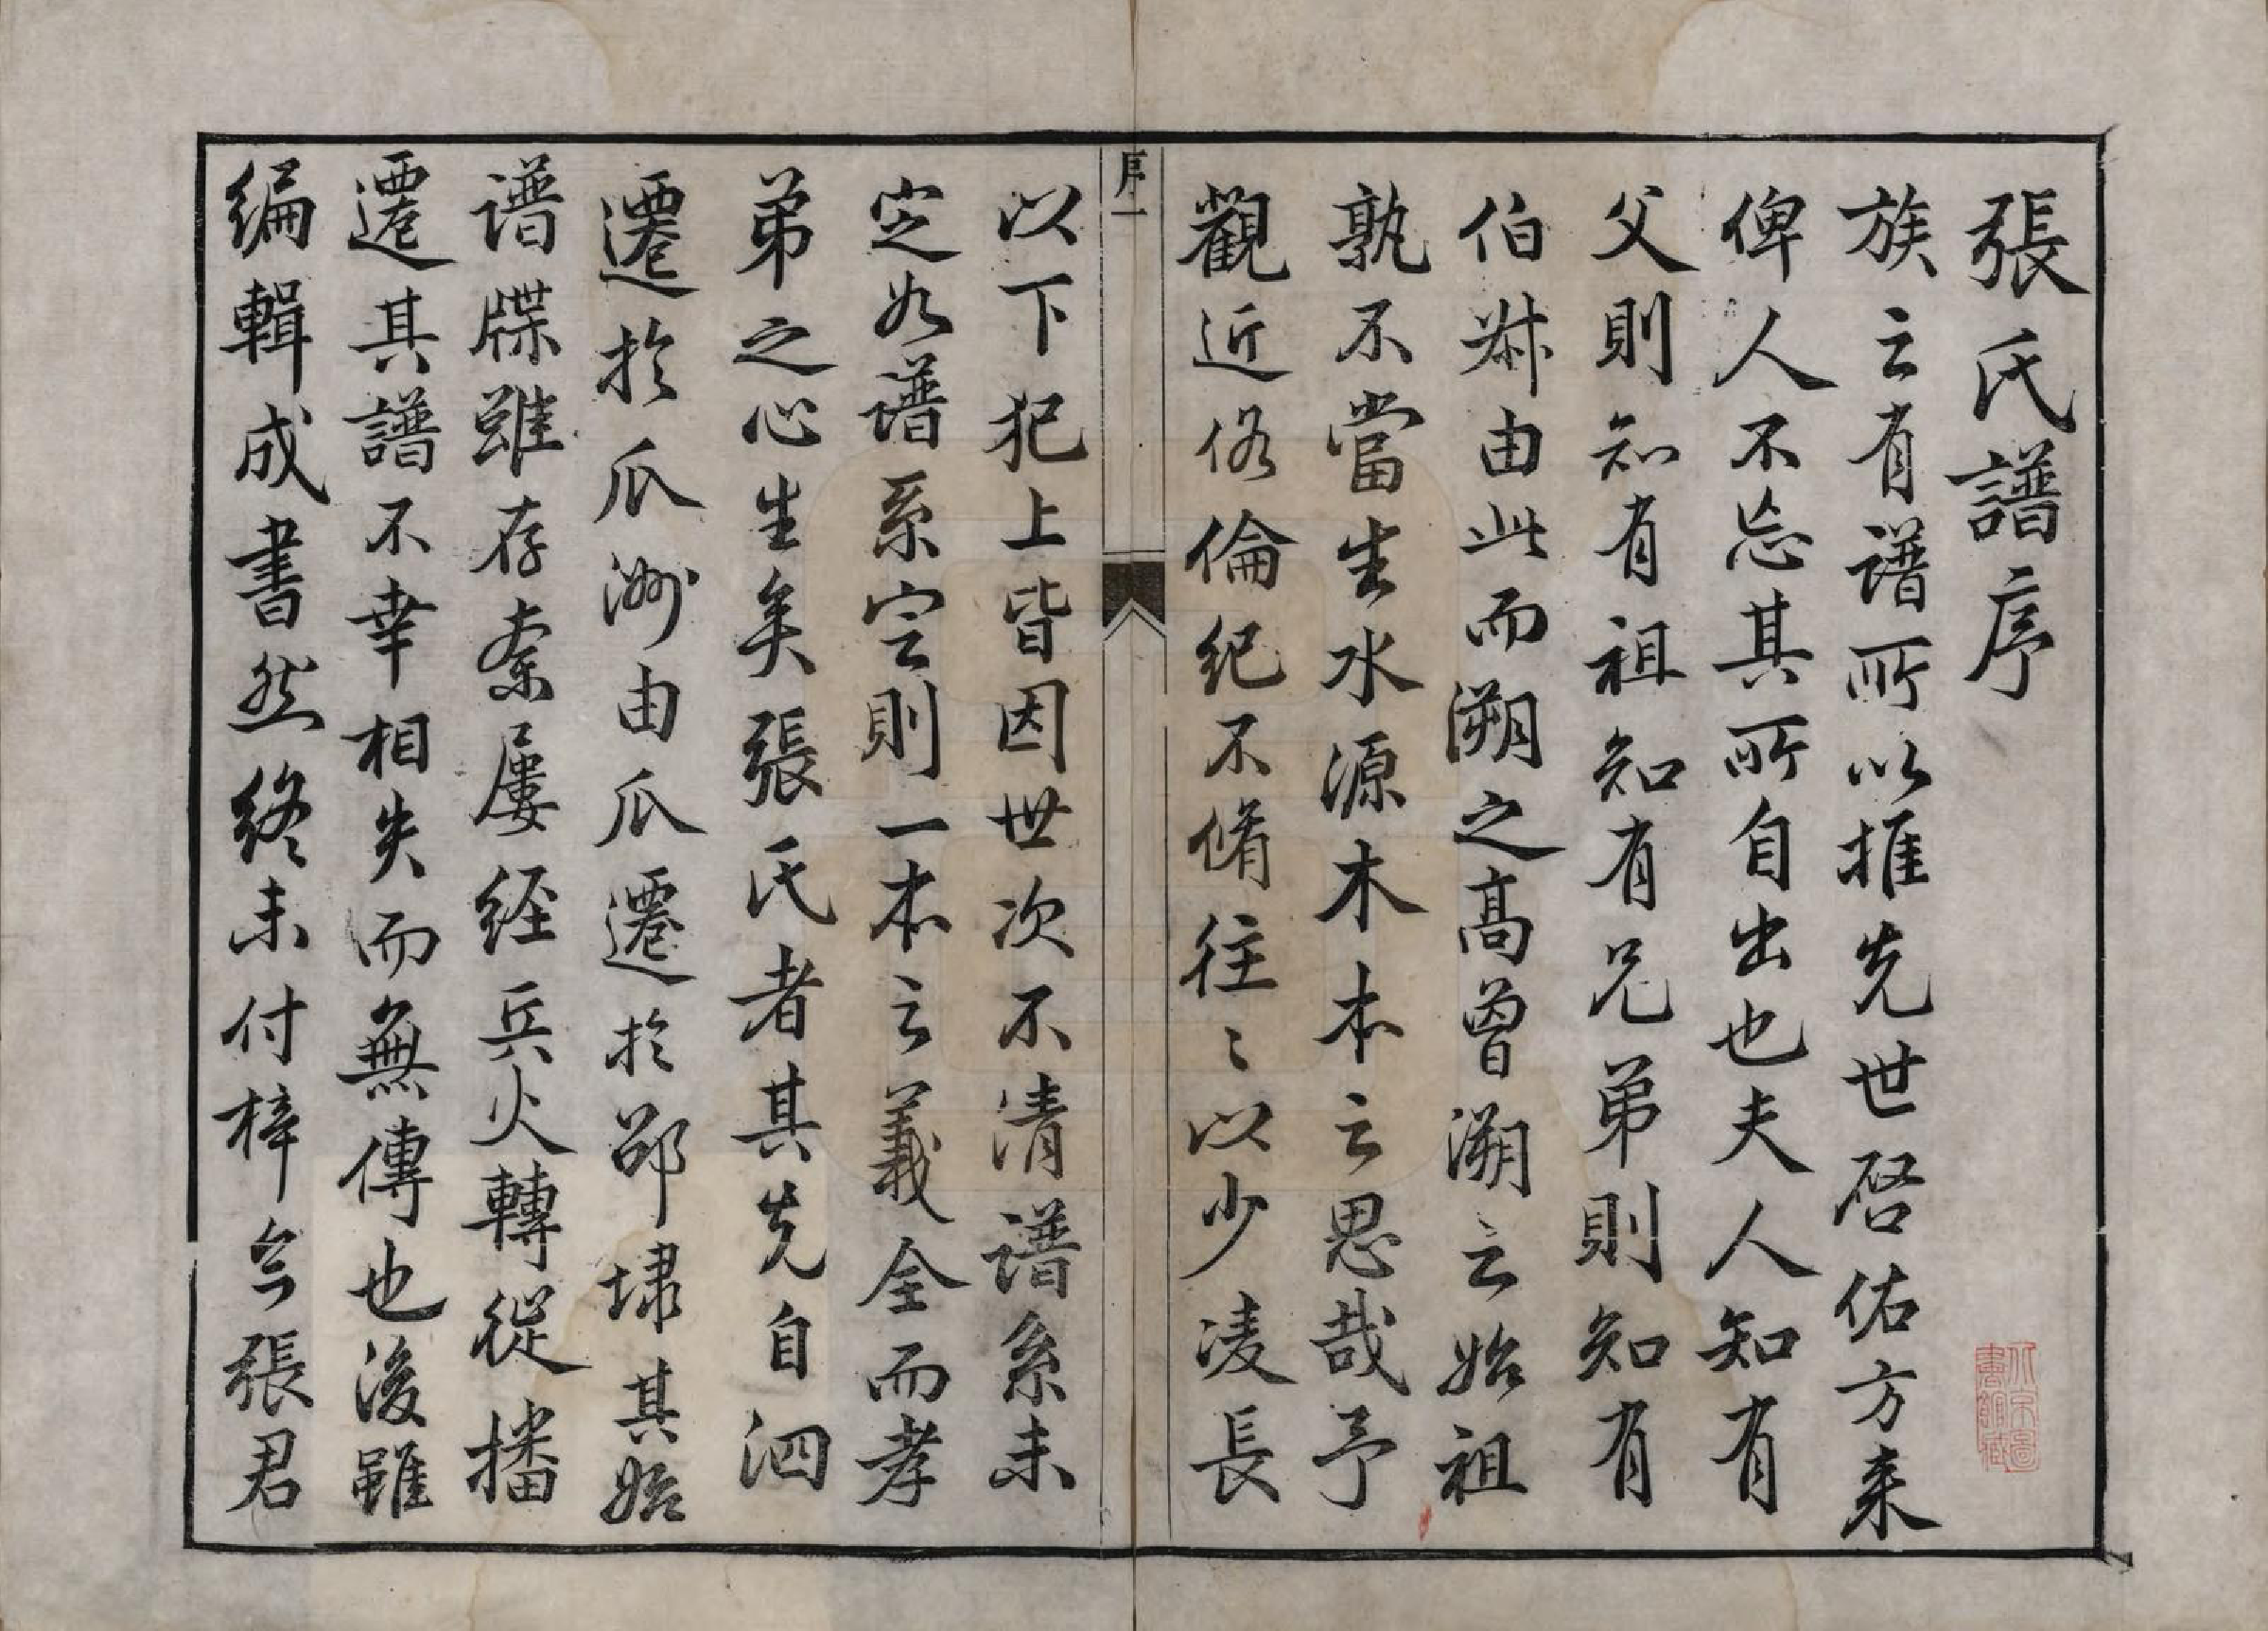 張氏譜序
族之有谱所以推先世啓佑方来
俾人不忘其所自出也夫人知有
父則知有祖知有兄弟則知有
伯叔由此而溯之高曾溯之始祖
孰不當生水源木本之思哉予
觀近俗倫紀不脩往〻以少凌長
序一
以下犯上皆因世次不清谱系未
定如谱系定則一本之義全而孝
弟之心生矣張氏者其先自泗
遷扵瓜洲由瓜遷扵邵埭其始
谱牒雖存柰屢經兵火轉從播
遷其譜不幸相失而無傳也後雖
编輯成書然终未付梓今張君